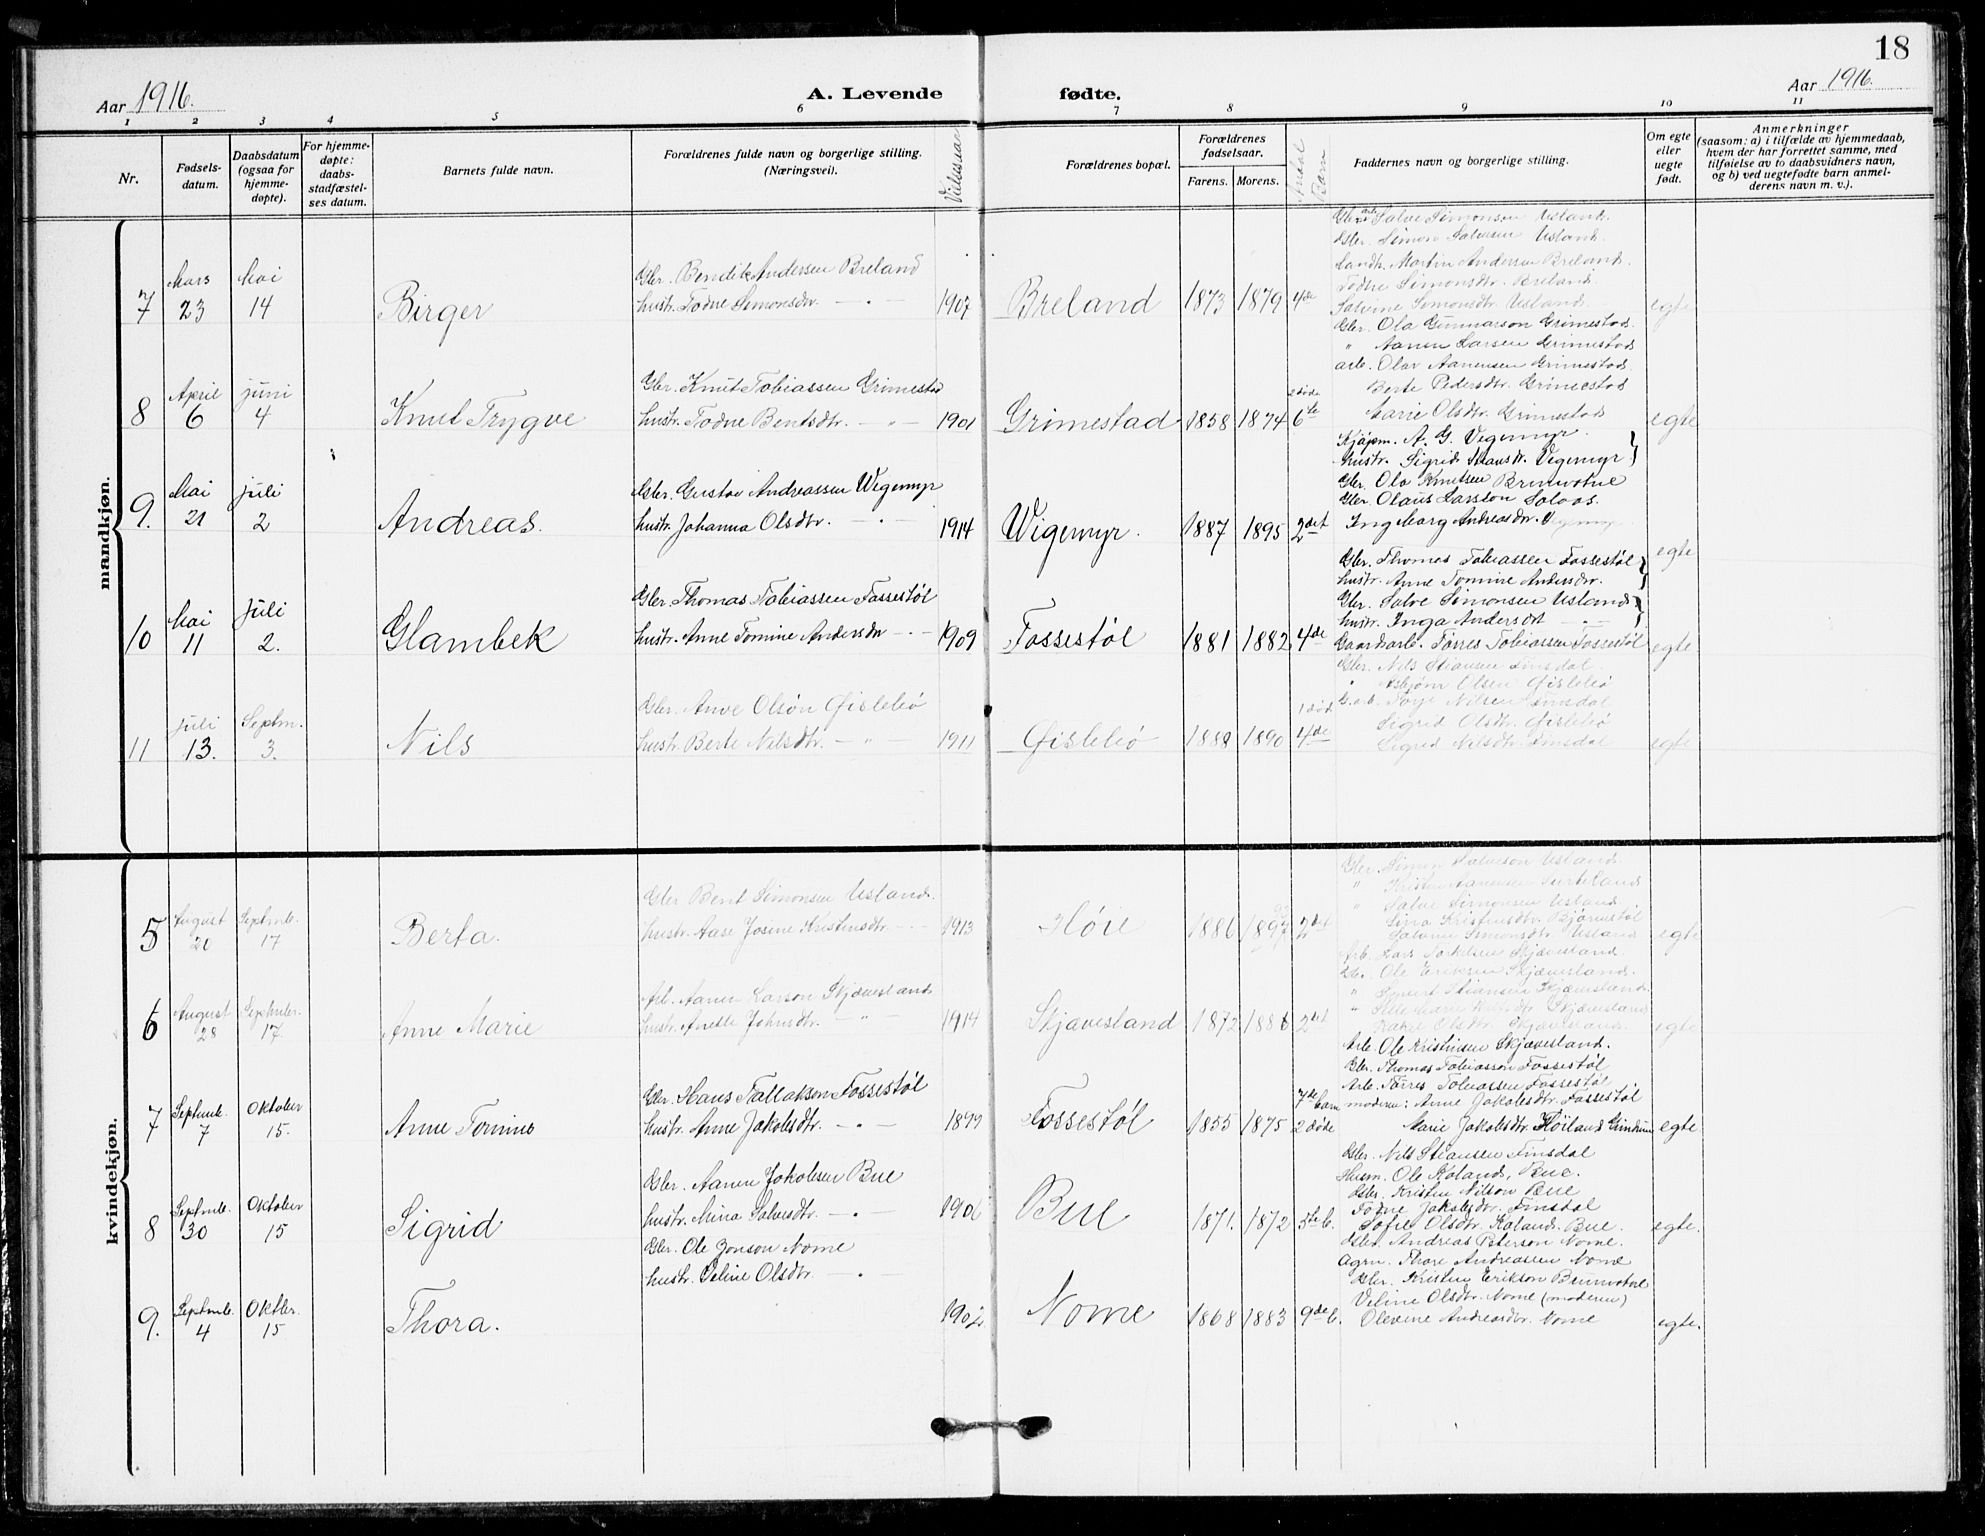 18
Aar 1916.
A. Levende fødte.
Aar 1916.
1 2 3 4 5 6 7 8 9 10 11
Nr.
Fødsels-
datum.
Daabsdatum
(ogsaa for
hjemme-
døpte).
For hjemme-
døpte:
daabs-
stadfæstel-
ses datum.
Barnets fulde navn.
Forældrenes fulde navn og borgerlige stilling.
(Næringsvei).
Vielsesaar
Forældrenes bopæl.
Forældrenes
fødselsaar.
Farens. Morens.
Antal
Barn
Faddernes navn og borgerlige stilling.
Om egte
eller
uegte
født.
Anmerkninger
(saasom: a) i tilfælde av hjemmedaab,
hvem der har forrettet samme, med
tilføielse av to daabsvidners navn,
og b) ved uegtefødte barn anmel-
derens navn m. v.).
mandkjøn.
7
Mars
23
Mai
14
Birger
Gbr. Bendik Andersen Breland
hustr. Todne Simonsdtr. — " —
1907
Breland
1873 1879 4de
Salve Simonsen Usland.
Gbr. Simon Salvesen Usland.
Landh. Martin Andersen Breland.
Todne Simonsdtr. Breland.
Salvine Simonsdtr. Usland.
egte
8
April
6
juni
4
Knut Trygve
Gbr. Knut Tobiassen Grimestad
hustr. Todne Bentsdtr. — " —
1901
Grimestad
1858 1874
2 døde
6te
Gbr. Ola Gunnarson Grimestad.
" Aanen Larsen Grimestad
arb. Olav Aanensen Grimestad
Berte Pedersdtr. Grimestad
Marie Olsdtr. Grimestad
egte
9.
Mai
21
juli
2
Andreas.
Gbr. Gustav Andreassen Wigemyr
hustr. Johanna Olsdtr. — " —
1914
Wigemyr.
1887 1895 2det
Kjøpm. A. G. Vegemyr.
hustr. Sigrid Vegemyr
Gbr. Ola Knutsen Brunvatne
Gbr Olaus Larsson Solaas.
Ingeborg Andreasdtr. Vegemyr
egte
10
Mai
11
Juli
2.
Glambek
Gbr. Thomas Tobiassen Fossestøl
hustr. Anne Tomine Andersdtr — " —
1909
Fossestøl
1881 1882 4de
Gbr. Thomas Tobiassen Fossestøl
hustr. Anne Tomine Andersdtr.
Gbr. Salve Simonsen Usland
hustr. Inga Andersdt — " —
Gaardsarb. Torres Tobiassen Fossestøl
egte
11
juli
13.
Septm.
3.
Nils
Gbr. Anve Olsøn Øislebø
hustr. Berte Nilsdtr. — " —
1911
Øislebø
1888 1890
1 død
4de
Gbr. Nils Stiansen Finsdal.
" Asbjørn Olsen Øislebø
G.arb. Torje Nilsen Finsdal
Sigrid Olsdtr. Øislebø
Sigrid Nilsdtr. Finsdal
egte
kvindekjøn.
5
August
20
Septmbr.
17
Berta.
Gbr Bent Simonsen Usland.
hustr. Aase Josine Kristinsdtr. — " —
1913
Høie
1886 1897 2det
Gbr. Simon Salveson Usland.
" Kristen Aanensen
" Salve Simonsen Usland
Sina Kristinsdtr. Bjørnestøl
Salvine Simonsdtr. Usland
egte
6
August
28
Septmbr.
17.
Anne Marie
Arb. Aanen Larson Skjævesland
hustr. Anette Johnsdtr. — " —
1914
Skjævesland
1872 1886 2det
Arb. Lars Torkelsen Skjævesland.
Gbr. Ole Eriksen Skjævesland.
" Stiansen Skjævesland.
Skjævesland
Olsdtr. Skjævesland.
egte
7
Septmb.
7
Oktober
15.
Anne Tomine
Gbr. Hans Tallakson Fossestøl
hustr. Anne Jakobsdtr. — " —
1899
Fossestøl
1855 1875
7de barn
2 døde
Arb. Ole Kristinsen Skjævesland.
Gbr. Thomas Tobiasson Fossestøl
Arb. Torres Tobiassen Fossestøl
moderen: Anne Jakobsdtr. Fossestøl
Marie Jakobsdtr. Høiland
egte
8
Septmb.
30
Oktober
15
Sigrid
Gbr. Aanen Jakobsen Bue
hustr. Mina Salvesdtr. — " —
Bue
1871. 1872 5te b.
Gbr. Nils Stiansen Finsdal
Husm. Ole Roland, Bue.
Gbr. Kristen Nilson Bue
Todne Jakobsdtr. Finsdal
Sofie Olsdtr. Roland. Bue.
egte.
9.
Septmb.
4
Oktbr.
15
Thora.
Gbr. Ole Jonson Nome
hustr. Seline Olsdtr. — " —
1902
Nome
1868 1883 9de b.
Gbr. Andreas Peterson Nome.
Agrn. Thore Andreassen Nome
Gbr. Kristen Erikson Brunvatne
Veline Olsdtr. Nome (moderen)
Olevine Andreasdtr. Nome
egte.